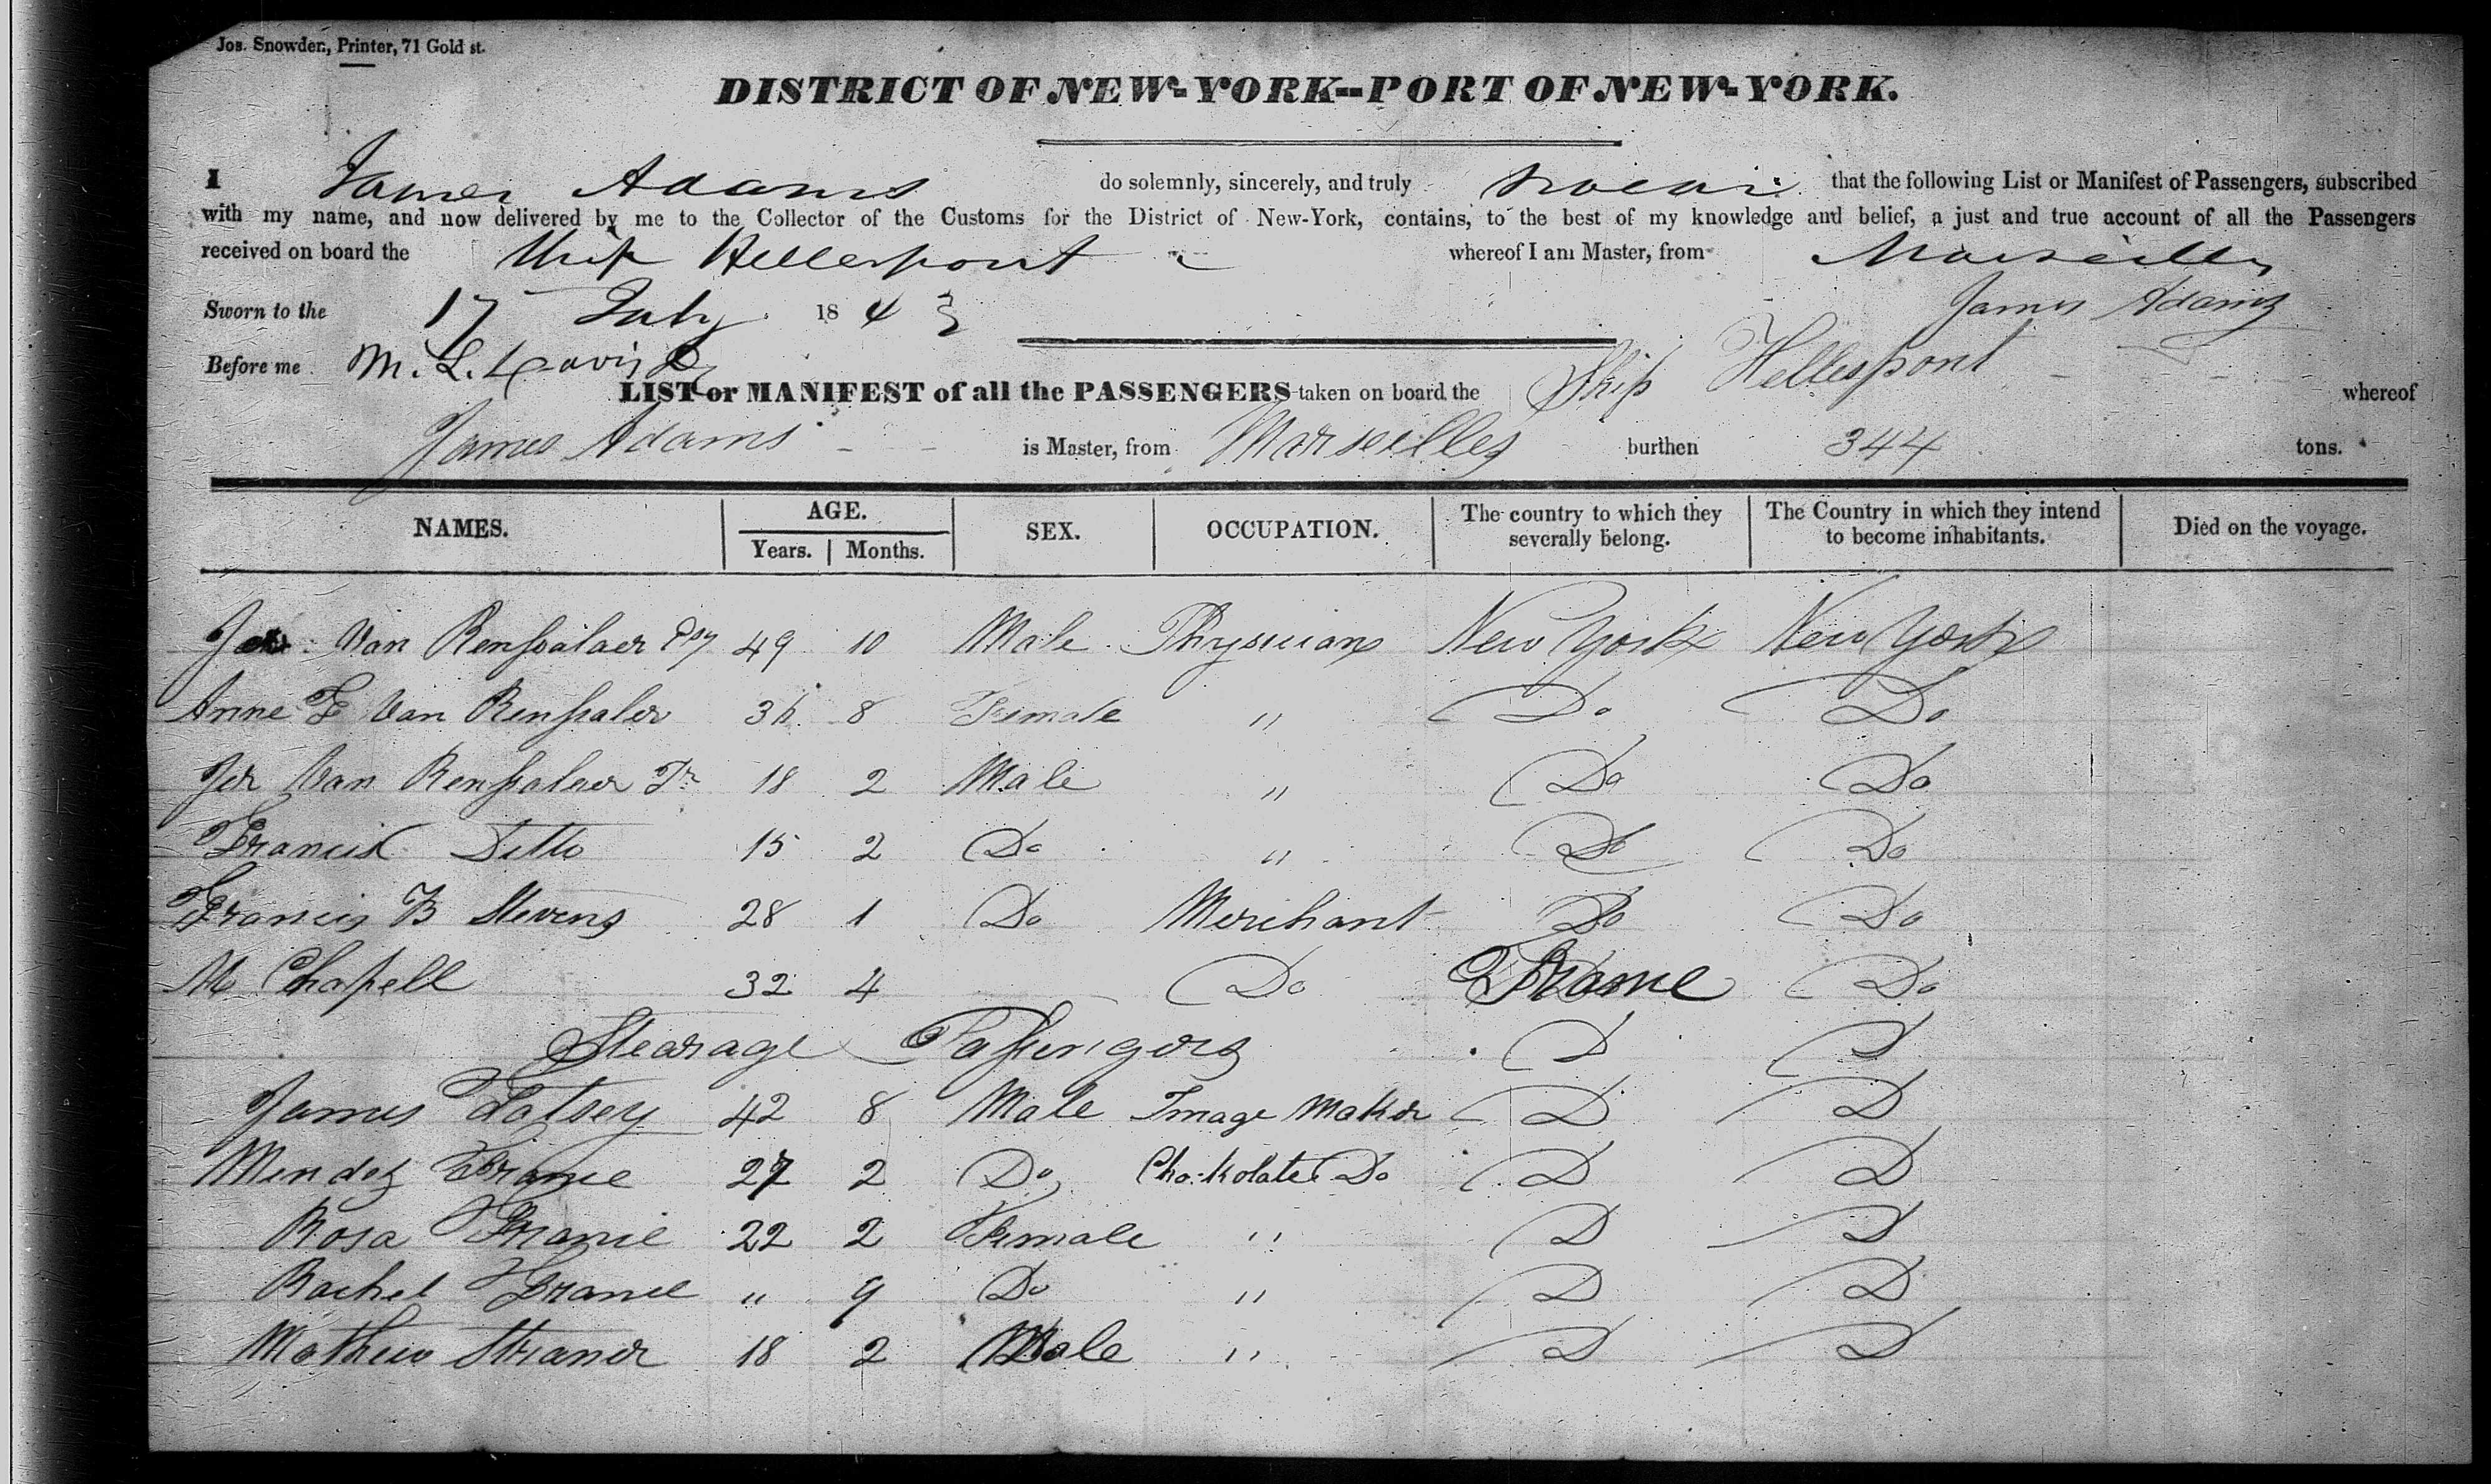 Jos. Snowden, Printer, 71 Gold st.
DISTRICT OF NEW-YORK--PORT OF NEW-YORK.
I James Adams do solemnly, sincerely, and truly swear that the following List or Manifest of Passengers, subscribed
with my name, and now delivered by me to the Collector of the Customs for the District of New-York, contains, to the best of my knowledge and belief, a just and true account of all the Passengers
received on board the Ship Hellespont whereof I am Master, from Marseilles
Sworn to the 17 July 1843 James Adams
Before me M. L. Davis
LIST or MANIFEST of all the PASSENGERS taken on board the Ship Hellespont whereof
James Adams is Master, from Marseilles burthen 344 tons.
NAMES. AGE. SEX. OCCUPATION. The country to which they severally belong. The Country in which they intend to become inhabitants. Died on the voyage.
Years. Months.
Van Renssalaer Esq 49 10 Male Physician New York New York
Anne F Van Renssaler 36 8 Female " Do Do
Jer Van Renssalaer Jr 18 2 Male " Do Do
Francis Ditto 15 2 Do " Do Do
Francis B Stevens 28 1 Do Merchant Do Do
M Chapell 32 4 Do France Do
Stearage Passengers D D
James 42 8 Male Image Maker D D
Mendez France 27 2 Do Cho-kolate Do D D
Rosa France 22 2 Female " D D
Rachel France " 9 Do " D D
Mathew 18 2 Male " D D